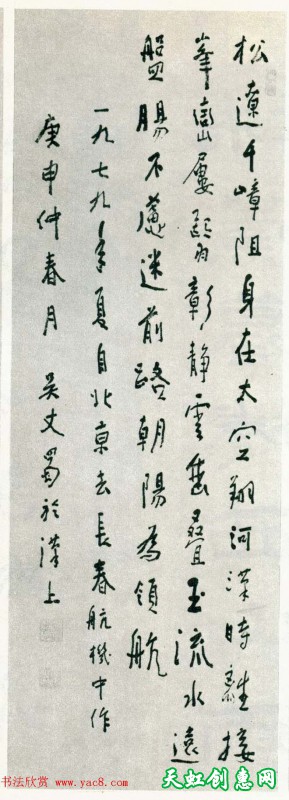 松遼千嶂阻身在太空翔河漢時離接
峯巒屢彰靜雲疊玉流水遠
盤腸不慮迷前路朝陽為領航
一九七九年夏自北京去長春航機中作
庚申仲春月 吴丈蜀於漢上
书法欣赏 www.yac8.com
天虹创意网